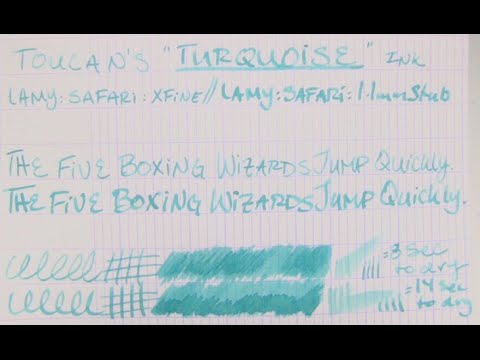 TOUCAN'S "TURQUOISE" INK
LAMY:SAFARI:XFINE//LAMY:SAFARI:1.1mmStub
THE FIVE BOXING WIZARDS JUMP QUICKLY.
THE FIVE BOXING WIZARDS JUMP QUICKLY.
=3 sec
to dry
=14 sec
to dry